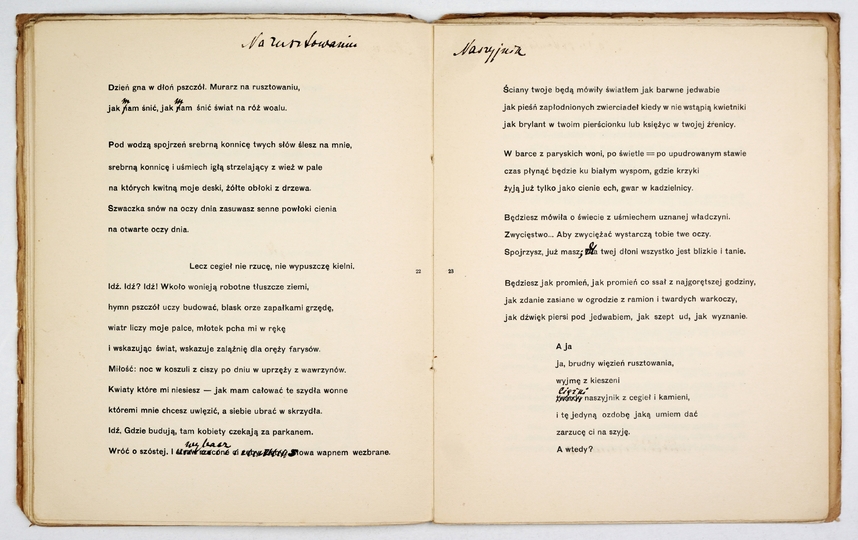 Na rusztowaniu
Dzień gna w dłoń pszczół. Murarz na rusztowaniu,
jak mam śnić, jak mam śnić świat na róż woalu.
Pod wodzą spojrzeń srebrną konnicę twych słów ślesz na mnie,
srebrną konnicę i uśmiech igłą strzelający z wież w pale
na których kwitną moje deski, żółte obłoki z drzewa.
Szwaczka snów na oczy dnia zasuwasz senne powłoki cienia
na otwarte oczy dnia.
Lecz cegieł nie rzucę, nie wypuszczę kielni.
Idź. Idź? Idź! Wkoło wonieją robotne tłuszcze ziemi,
hymn pszczół uczy budować, blask orze zapałkami grzędę,
wiatr liczy moje palce, młotek pcha mi w rękę
i wskazując świat, wskazuje zalążnię dla oręży farysów.
Miłość: noc w koszuli z ciszy po dniu w uprzęży z wawrzynów.
Kwiaty które mi niesiesz — jak mam całować te szydła wonne
któremi mnie chcesz uwięzić, a siebie ubrać w skrzydła.
Idź. Gdzie budują, tam kobiety czekają za parkanem.
wybacz
Wróć o szóstej. I słowa wapnem wezbrane.
22
Naszyjnik
Ściany twoje będą mówiły światłem jak barwne jedwabie
jak pieśń zapłodnionych zwierciadeł kiedy w nie wstąpią kwietniki
jak brylant w twoim pierścionku lub księżyc w twojej źrenicy.
W barce z paryskich woni, po świetle = po upudrowanym stawie
czas płynąć będzie ku białym wyspom, gdzie krzyki
żyją już tylko jako cienie ech, gwar w kadzielnicy.
Będziesz mówiła o świecie z uśmiechem uznanej władczyni.
Zwycięstwo... Aby zwyciężać wystarczą tobie twe oczy.
Spojrzysz, już masz; dla twej dłoni wszystko jest blizkie i tanie.
Będziesz jak promień, jak promień co ssał z najgorętszej godziny,
jak zdanie zasiane w ogrodzie z ramion i twardych warkoczy,
jak dźwięk piersi pod jedwabiem, jak szept ud, jak wyznanie.
A ja
ja, brudny więzień rusztowania,
wyjmę z kieszeni
ciężki
naszyjnik z cegieł i kamieni,
i tę jedyną ozdobę jaką umiem dać
zarzucę ci na szyję.
A wtedy?
23